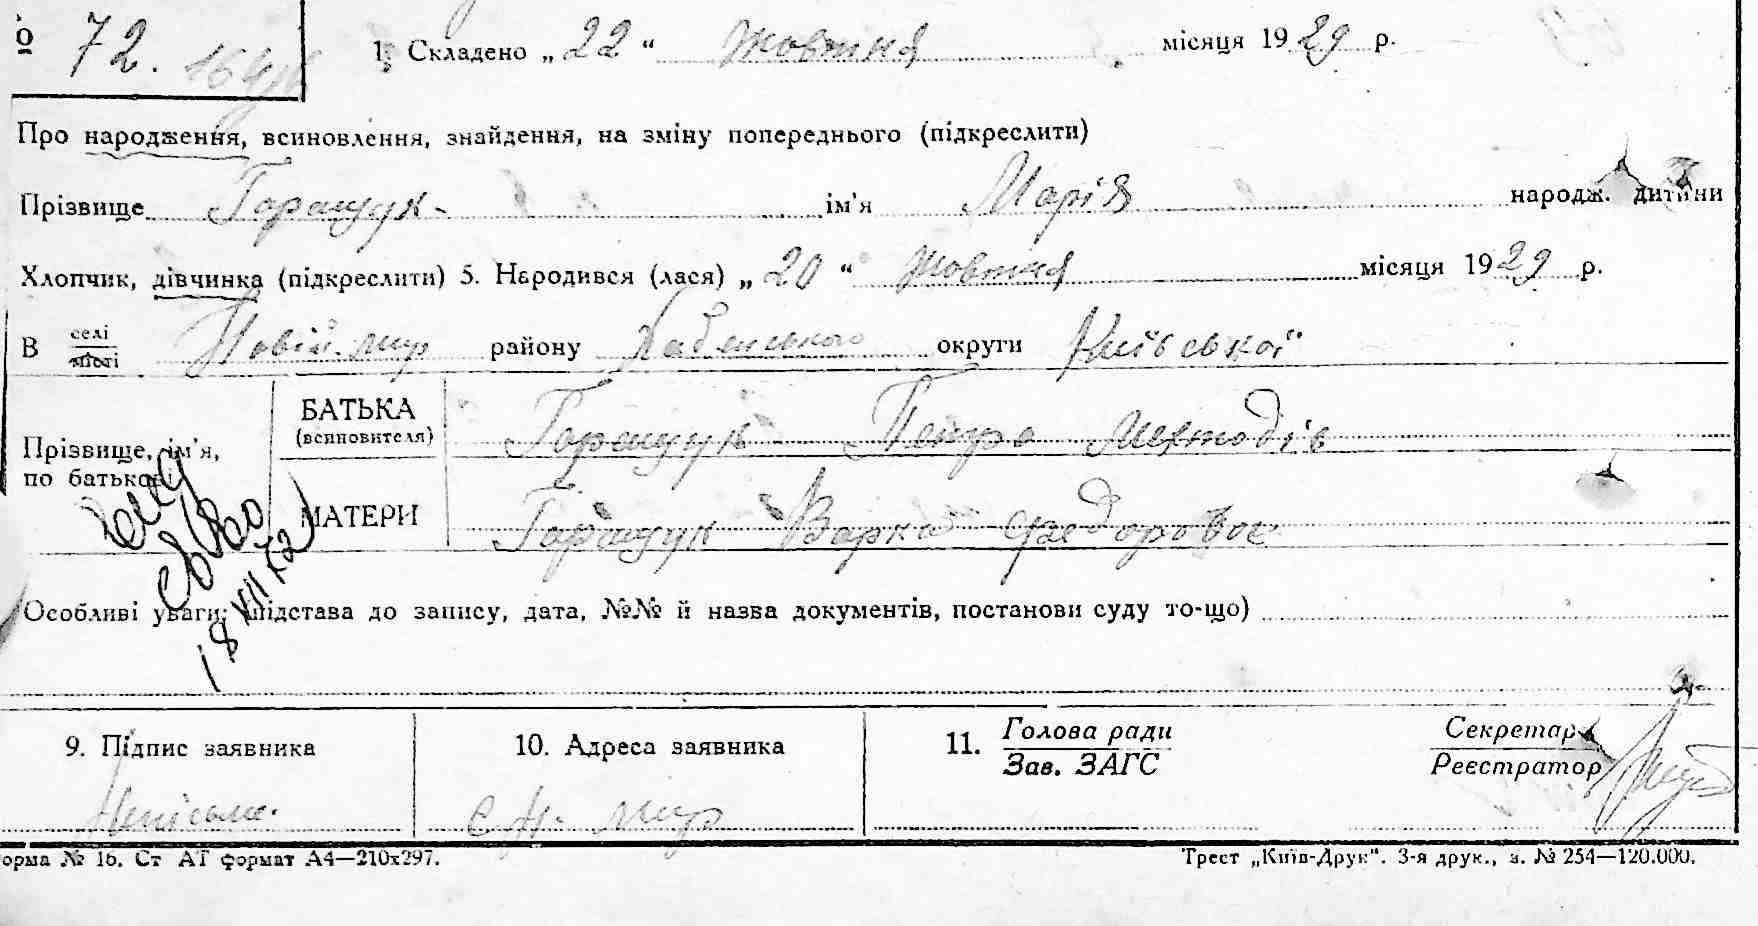 о 72.
1. Складено „22“ жовтня місяця 1929 р.
Про народження, всиновлення, знайдення, на зміну попереднього (підкреслити)
Прізвище Горащук ім'я Марія народж. дитини
Хлопчик, дівчинка (підкреслити) 5. Народився (лася) „20“ жовтня місяця 1929 р.
В селі місті Новій мир району Хабенського округи Київської
Прізвище, ім'я, по батькові
БАТЬКА (всиновителя) Горащук Петро Мехтодів
МАТЕРИ Горащук Варка Федоровов
18 VII 72
Особливі уваги: (підстава до запису, дата, №№ й назва документів, постанови суду то-що)
9. Підпис заявника
10. Адреса заявника
11. Голова ради Зав. ЗАГС
Секретар Реєстратор
Непісьме.
с Н. мир
орма № 16. Ст АТ формат А4—210x297.
Трест „Київ-Друк“. 3-я друк., з. № 254—120.000.